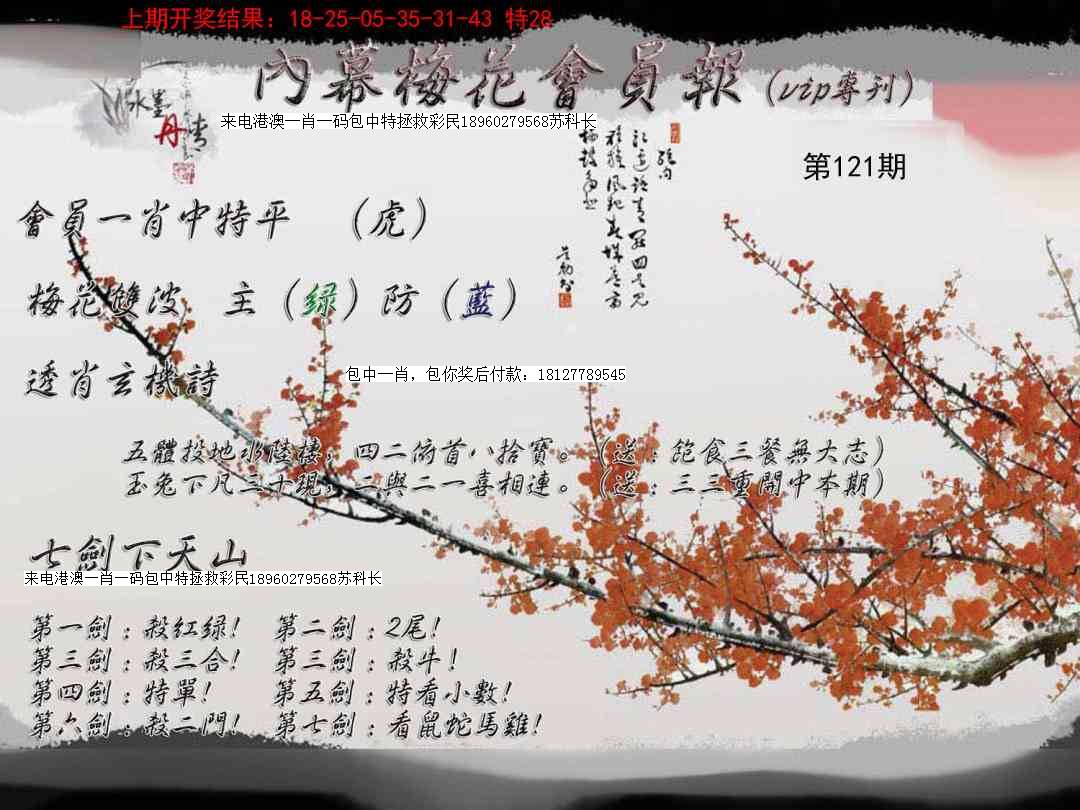 上期开奖结果：18-25-05-35-31-43 特28
內幕梅花會員報（vip專刊）
水墨丹青
来电港澳一肖一码包中特拯救彩民18960279568苏科长
第121期
會員一肖中特平 （虎）
梅花雙波 主（绿）防（藍）
透肖玄機詩
包中一肖，包你奖后付款：18127789545
五體投地水陸樓，四二俯首八拾寶。（送：飽食三餐無大志）
玉兔下凡三十現，二與二一喜相連。（送：三三重開中本期）
七劍下天山
来电港澳一肖一码包中特拯救彩民18960279568苏科长
第一劍：殺红绿！ 第二劍：2尾！
第三劍：殺三合！ 第三劍：殺牛！
第四劍：特單！ 第五劍：特看小數！
第六劍：殺二門！ 第七劍：看鼠蛇馬雞！